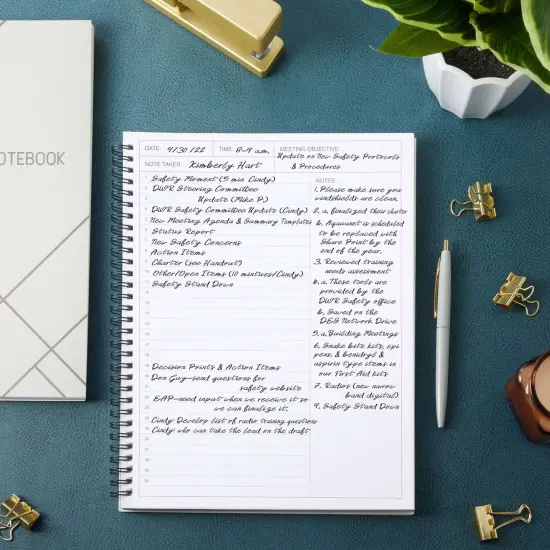 NOTEBOOK
DATE: 9/30/22 TIME: 8-9 a.m. MEETING OBJECTIVE:
Update on New Safety Protocols
& Procedures
NOTE TAKER: Kimberly Hart
Safety Moment (5 min Cindy)
DWR Steering Committee
Update (Mike P.)
DWR Safety Committee Update (Cindy)
New Meeting Agenda & Summary Templates
Status Report
New Safety Concerns
Action Items
Charter (see Handout)
Other/Open Items (10 mintues/Cindy)
Safety Stand Down
Decision Points & Action Items
Don Guy-send questions for
safety website
EAP-need input when we receive it so
we can finalize it.
Cindy Develop list of radio training questions
Cindy who can take the lead on the draft
NOTES:
1. Please make sure your
windshields are clean.
2. a. finalized their charter
b. Aquanet is scheduled
to be replaced with
Share Print by the
end of the year.
3. Reviewed training
needs assessment
4. a. These tools are
provided by the
DWR Safety office
b. Saved on the
DES Network Drive
5. a. Building Meetings
6. Snake bite kits, epi
pens, & benidryl &
aspirin type items in
our First Aid kits
7. Radios (new narrow
band digital)
9. Safety Stand Down